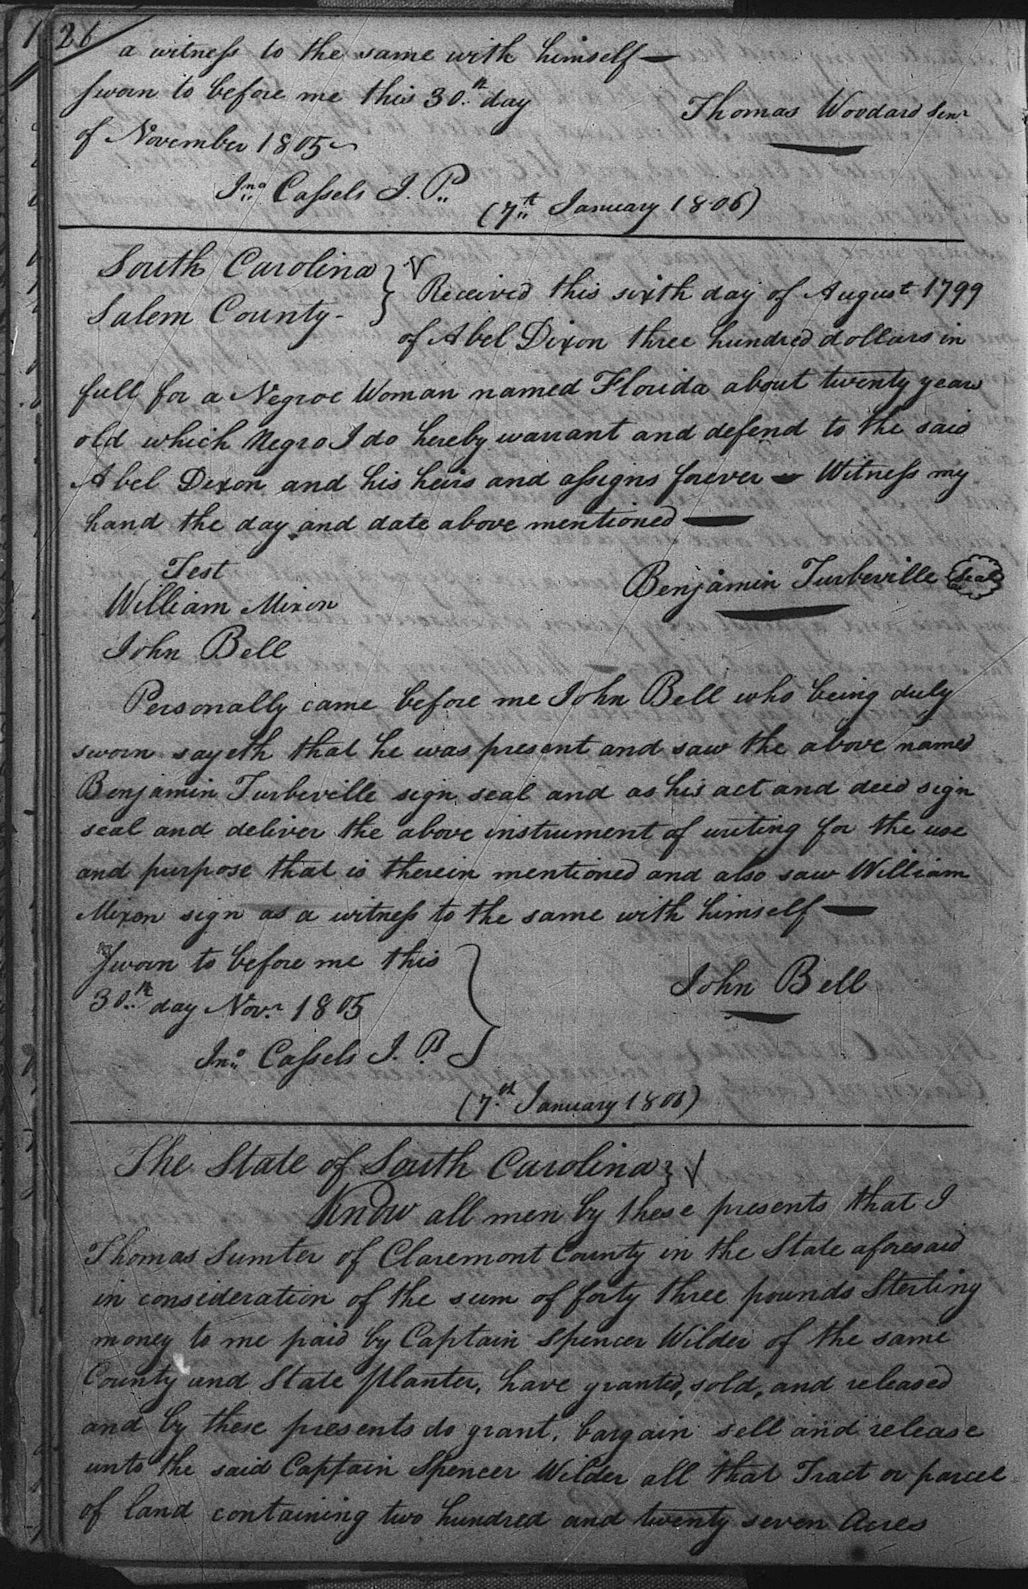 126
a witness to the same with himself —
Sworn to before me this 30.th day
of November 1805
Thomas Woodard Senr
Jno Cassels J. P.
(7th January 1806)
South Carolina }
Salem County - }
Received this sixth day of August 1799
of Abel Dixon three hundred dollars in
full for a Negroe Woman named Florida about twenty years
old which Negro I do hereby warrant and defend to the said
Abel Dixon and his heirs and assigns forever — Witness my
hand the day and date above mentioned —
Test
William Mixon
John Bell
Benjamin Turbeville Seal
Personally came before me John Bell who being duly
sworn sayeth that he was present and saw the above named
Benjamin Turbeville sign, seal and as his act and deed sign
seal and deliver the above instrument of writing for the use
and purpose that is therein mentioned and also saw William
Mixon sign as a witness to the same with himself —
Sworn to before me this
30.th day Novr. 1805
Jno Cassels J. P.
John Bell
(7.th January 1806)
The State of South Carolina }
Know all men by these presents that I
Thomas Sumter of Claremont County in the State aforesaid
in consideration of the sum of forty three pounds Sterling
money to me paid by Captain Spencer Wilder of the same
County and State planter, have granted, sold, and released
and by these presents do grant, bargain sell and release
unto the said Captain Spencer Wilder all that Tract or parcel
of land containing two hundred and twenty seven Acres